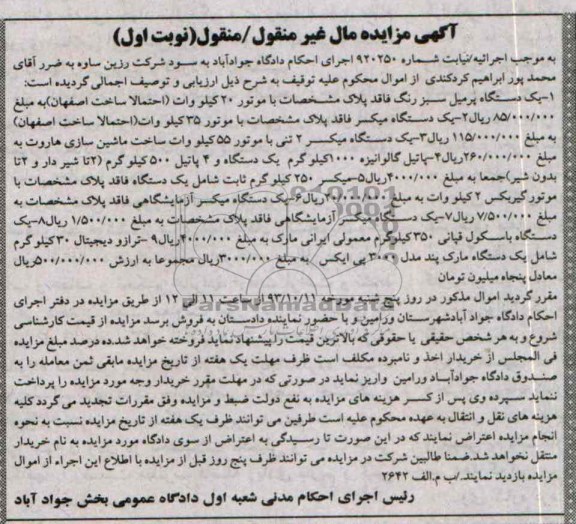 آگهی مزایده مال غیر منقول/منقول(نوبت اول)
به موجب اجرائیه/نیابت شماره ۹۲۰۲۵۰ اجرای احکام دادگاه جوادآباد به سود شرکت رزین ساوه به ضرر آقای
محمد پور ابراهیم کردکندی از اموال محکوم علیه توقیف به شرح ذیل ارزیابی و توصیف اجمالی گردیده است:
۱-یک دستگاه پرمیل سبز رنگ فاقد پلاک مشخصات با موتور ۲۰ کیلو وات (احتمالا ساخت اصفهان)به مبلغ
۸۵/۰۰۰/۰۰۰ ریال۲-یک دستگاه میکسر فاقد پلاک مشخصات با موتور ۳۵ کیلو وات(احتمالا ساخت اصفهان)
به مبلغ ۱۱۵/۰۰۰/۰۰۰ ریال۳-یک دستگاه میکسر ۲ تنی با موتور ۵۵ کیلو وات ساخت ماشین سازی هاروت به
مبلغ ۲۶۰/۰۰۰/۰۰۰ریال۴-پاتیل گالوانیزه ۱۰۰۰کیلو گرم یک دستگاه و ۴ پاتیل ۵۰۰ کیلو گرم (۲تا شیر دار و ۲تا
بدون شیر)جمعا به مبلغ ۴۰۰۰/۰۰۰ریال۵-میکسر ۲۵۰ کیلو گرم ثابت شامل یک دستگاه فاقد پلاک مشخصات با
موتور گیربکس ۲ کیلو وات به مبلغ ۲۰/۰۰۰/۰۰۰ ریال۶-یک دستگاه میکسر آزمایشگاهی فاقد پلاک مشخصات به
مبلغ ۷/۵۰۰/۰۰۰ ریال۷-یک دستگاه میکسر آزمایشگاهی فاقد پلاک مشخصات به مبلغ ۱/۵۰۰/۰۰۰ ریال۸-یک
دستگاه باسکول قپانی ۳۵۰ کیلوگرم معمولی ایرانی مارک به مبلغ ۴۰۰۰/۰۰۰ریال۹-ترازو دیجیتال ۳۰ کیلو گرم
شامل یک دستگاه مارک پند مدل ۳۰۰۰ پی ایکس به مبلغ ۳۰۰۰/۰۰۰ریال مجموعا به ارزش ۵۰۰/۰۰۰/۰۰۰ریال
معادل پنجاه میلیون تومان
مقرر گردید اموال مذکور در روز پنج شنبه مورخه ۹۳/۱۰/۱۱ از ساعت ۱۱ الی ۱۲ از طریق مزایده در دفتر اجرای
احکام دادگاه جواد آبادشهرستان ورامین و با حضور نماینده دادستان به فروش برسد مزایده از قیمت کارشناسی
شروع و به هر شخص حقیقی یا حقوقی که بالاترین قیمت را پیشنهاد نماید فروخته خواهد شد.ده درصد مبلغ مزایده
فی المجلس از خریدار اخذ و نامبرده مکلف است ظرف مهلت یک هفته از تاریخ مزایده مابقی ثمن معامله را به
صندوق دادگاه جوادآباد ورامین واریز نماید در صورتی که در مهلت مقرر خریدار وجه مورد مزایده را پرداخت
ننماید سپرده وی پس از کسر هزینه های مزایده به نفع دولت ضبط و مزایده وفق مقررات تجدید می گردد کلیه
هزینه های نقل و انتقال به عهده محکوم علیه است طرفین می توانند ظرف یک هفته از تاریخ مزایده نسبت به نحوه
انجام مزایده اعتراض نمایند که در این صورت تا رسیدگی به اعتراض از سوی دادگاه مورد مزایده به نام خریدار
منتقل نخواهد شد.ضمنا طالبین شرکت در مزایده می توانند ظرف پنج روز قبل از مزایده با اطلاع این اجراء از اموال
مزایده بازدید نمایند./ب م.الف ۲۶۴۲
رئیس اجرای احکام مدنی شعبه اول دادگاه عمومی بخش جواد آباد
ParsNamadData